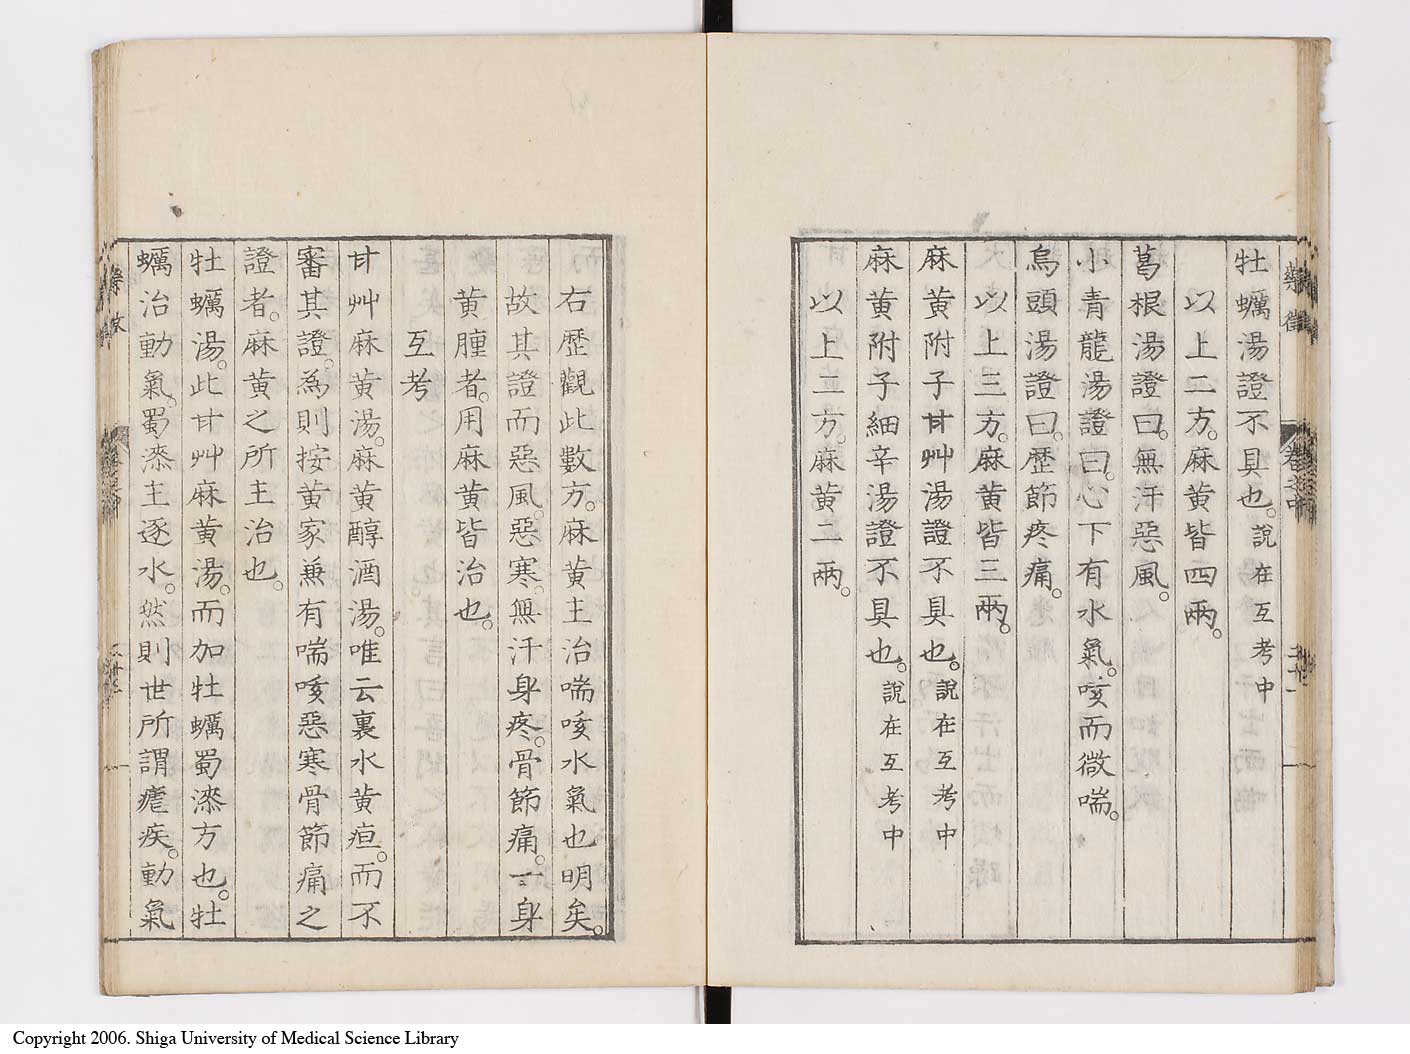 牡蠣湯證不具也。說在互考中
以上二方。麻黃皆四兩。
葛根湯證曰。無汗惡風。
小青龍湯證曰。心下有水氣。咳而微喘。
烏頭湯證曰。歷節疼痛。
以上三方。麻黃皆三兩。
麻黃附子甘艸湯證不具也。說在互考中
麻黃附子細辛湯證不具也。說在互考中
以上二方。麻黃二兩。
右歷觀此數方。麻黃主治喘咳水氣也明矣。
故其證而惡風。惡寒。無汗身疼。骨節痛。一身
黃腫者。用麻黃皆治也。
互考
甘艸麻黃湯。麻黃醇酒湯。唯云裏水黃疸。而不
審其證。為則按黃家兼有喘咳惡寒骨節痛之
證者。麻黃之所主治也。
牡蠣湯。此甘艸麻黃湯。而加牡蠣蜀漆方也。牡
蠣治動氣。蜀漆主逐水。然則世所謂瘧疾。動氣
Copyright 2006. Shiga University of Medical Science Library